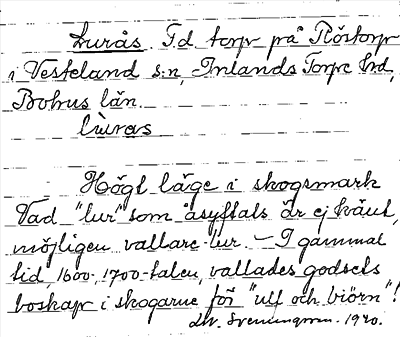 Lurås. F.d. torp på Röstorp
i Vesteland s:n, Inlands Torpe hrd,
Bohus län.
lùras
Högt läge i skogsmark
Vad "lur" som åsyftals är ej känt,
möjligen vallare-lur. – I gammal
tid, 1600-, 1700-talen, vallades godsets
boskap i skogarne för "ulf och biörn"!
1920.